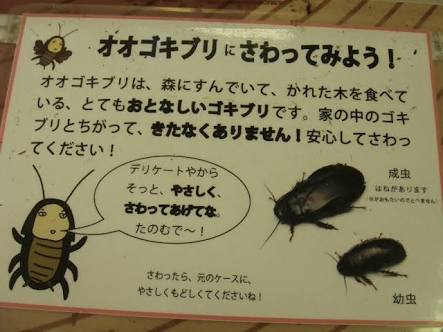 オオゴキブリにさわってみよう！
オオゴキブリは、森にすんでいて、かれた木を食べて
いる、とてもおとなしいゴキブリです。家の中のゴキ
ブリとちがって、きたなくありません！安心してさわっ
てください！
デリケートやから
そっと、やさしく、
さわってあげてな。
たのむで〜！
成虫
はねがあります
(体がおもたいのでとべません)
幼虫
さわったら、元のケースに、
やさしくもどしてくださいね！